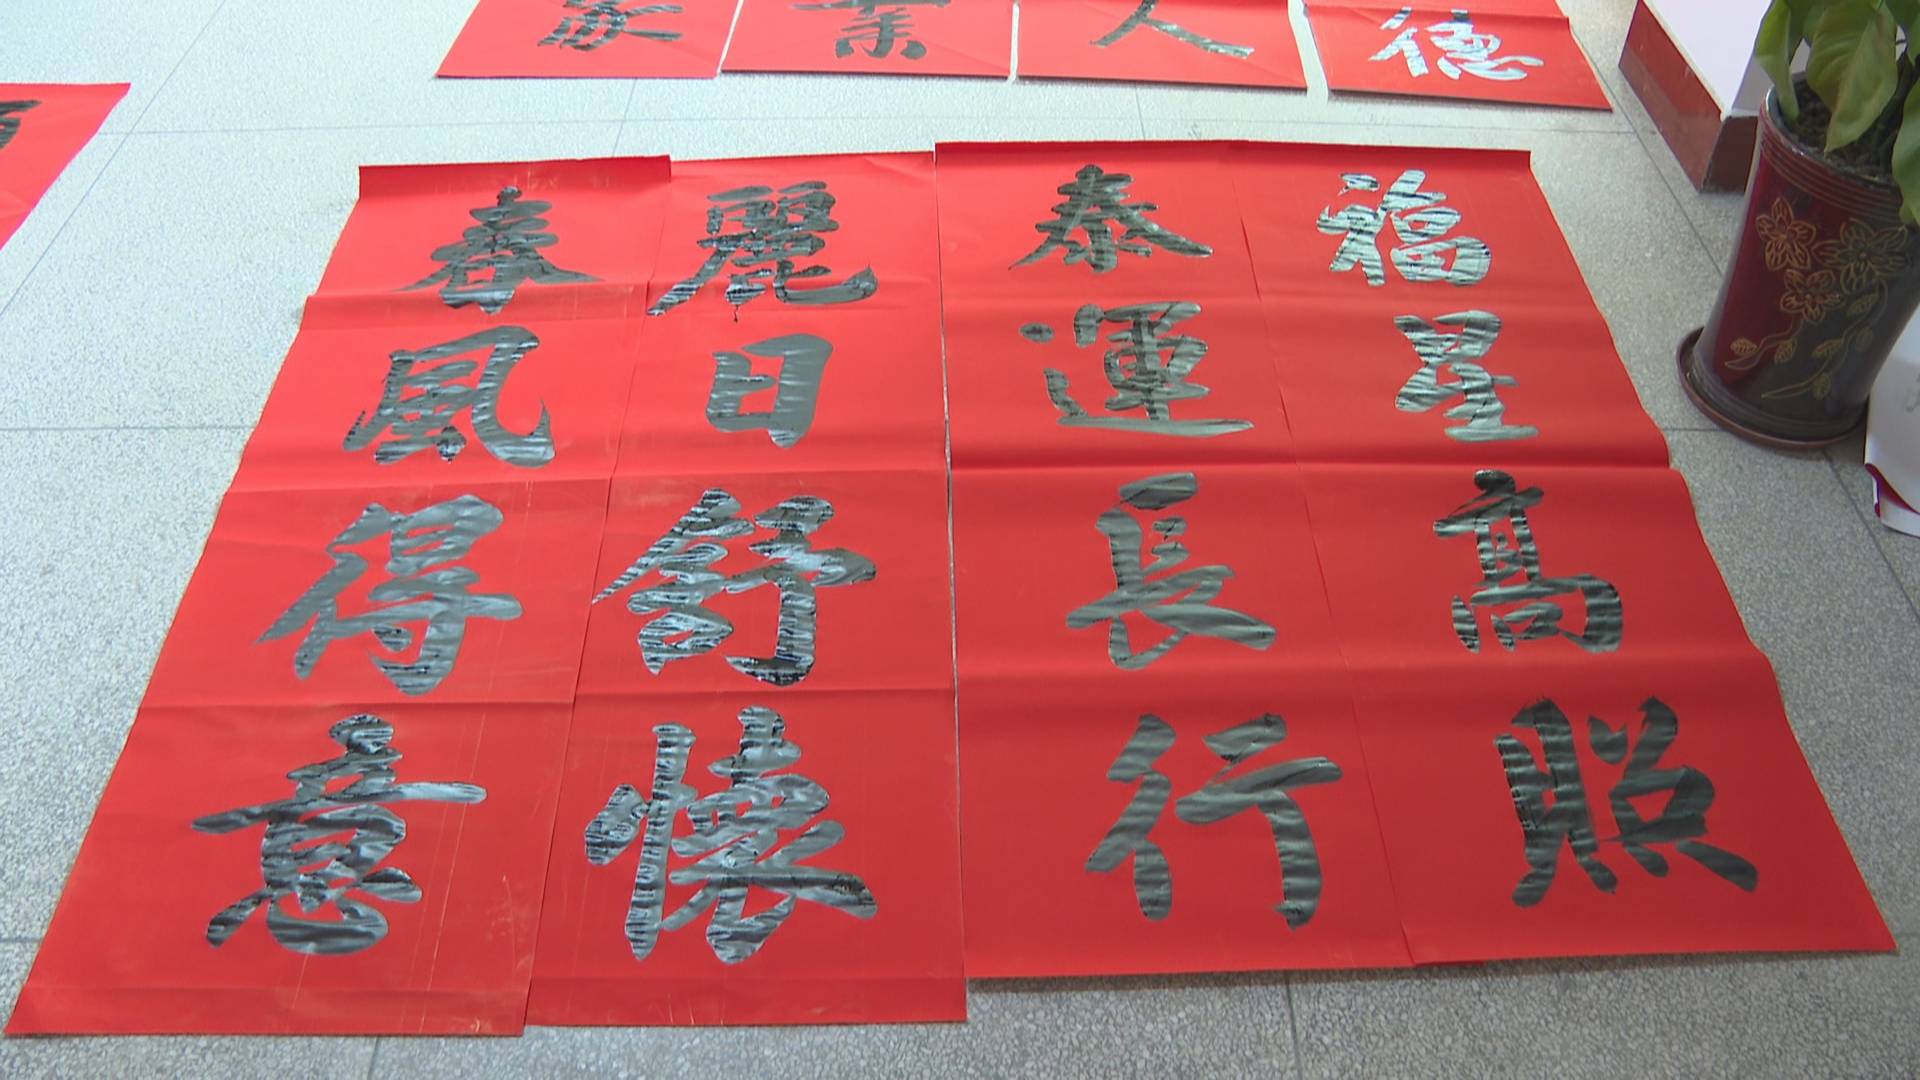 德
人
業
家
福星高照
泰運長行
麗日舒懷
春風得意